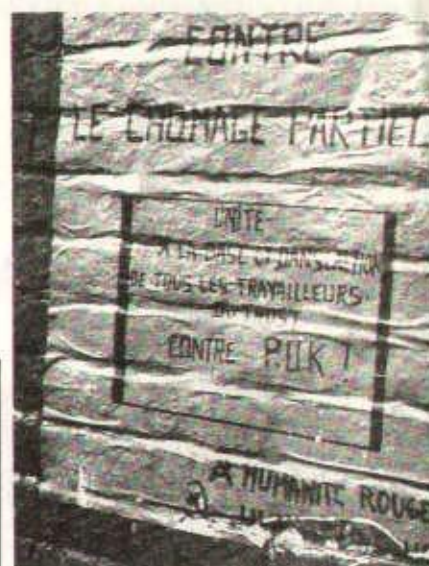 CONTRE
LE CHOMAGE PARTIEL
UNITE
A LA BASE ET DANS L'ACTION
DE TOUS LES TRAVAILLEURS
CONTRE P.U.K !
HUMANITE ROUGE